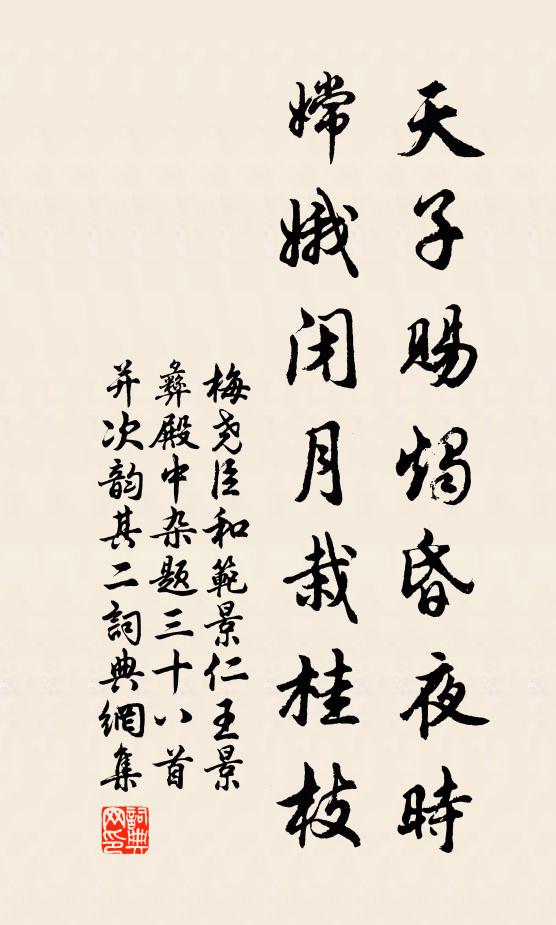 天子賜燭昏夜時
嫦娥闭月栽桂枝
梅尧臣和範景仁王景
彝殿中杂题三十八首
并次韵其二詞典網集
詞典網印